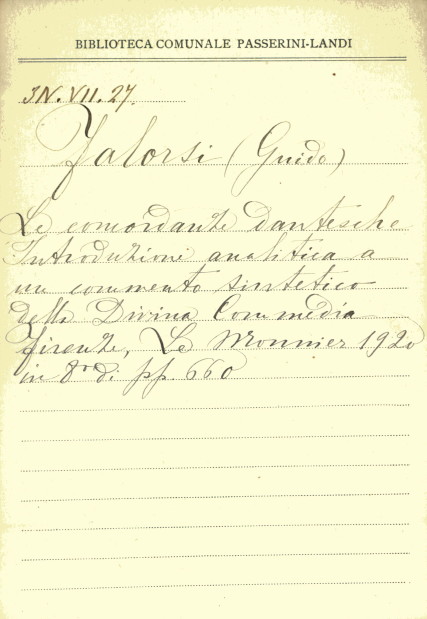 BIBLIOTECA COMUNALE PASSERINI-LANDI
IN. VII. 27.
Falorsi (Guido)
Le concordanze dantesche
Introduzione analitica a
un commento sintetico
della Divina Commedia
Firenze, Le Monnier 1920
in 8º di pp. 660